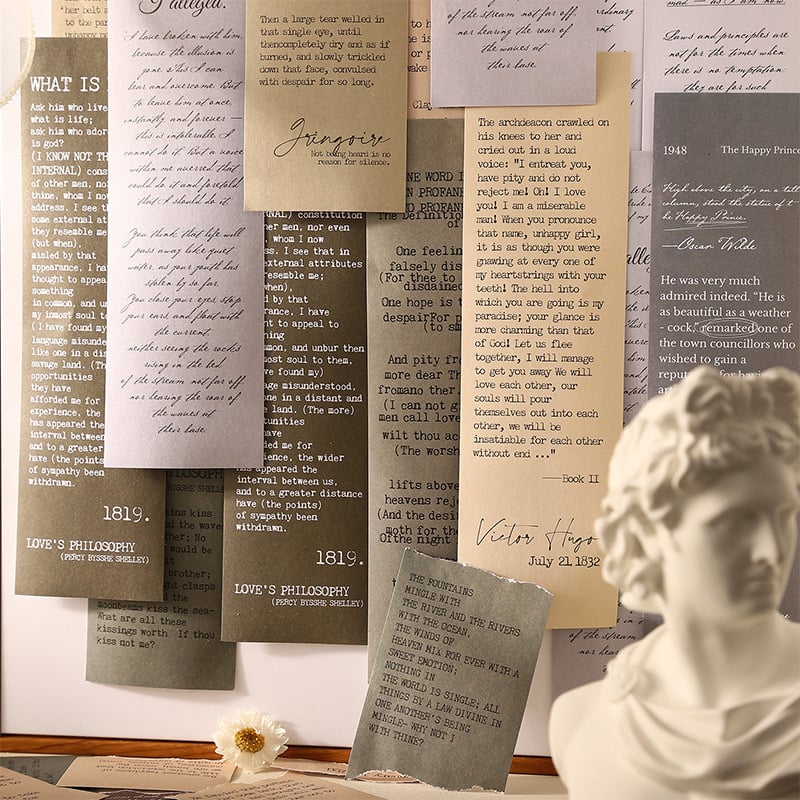 her belt a
to the par
WHAT IS
Ask him who live
what is life;
ask him who ador
is god?
(I KNOW NOT TH
INTERNAL) cons
of other men, no
thine, whom I no
address. I see th
some external at
they resemble me
(but when),
misled by that
appearance, I ha
thought to appea
something
in common, and un
my inmost soul t
(I have found my
language misunde
like one in a dis
savage land. (Th
opportunities
they have
afforded me for
experience, the
has appeared the
interval between
and to a greater
have (the points
of sympathy been
withdrawn.
1819.
LOVE'S PHILOSOPHY
(PERCY BYSSHE SHELLEY)
I alleged.
I have broken with him,
because the illusion is
gone. I can
hear and overcome. But
to leave him at once,
instantly and forever —
this is intolerable. I
cannot do it. But a voice
within me averred that
could do it and foretold
that I should do it.
You think that life will
pass away like quiet
water, as your youth has
stolen by so far.
You close your eyes, stop
your ears, and float with
the current,
neither seeing the rocks
rising in the bed
of the stream not far off,
nor hearing the roar of
the waves at
their base.
Then a large tear welled in
that single eye, until
thencompletely dry and as if
burned, and slowly trickled
down that face, convulsed
with despair for so long.
Gringoire
Not being heard is no
reason for silence.
NAL) constitution
her men, nor even
, whom I now
ss. I see that in
external attributes
resemble me;
when),
d by that
rance, I have
nt to appeal to
hing
mmon, and unbur then
most soul to them,
ve found my)
age misunderstood,
one in a distant and
e land. (The more)
tunities
have
ded me for
ience, the wider
has appeared the
interval between us,
and to a greater distance
have (the points)
of sympathy been
withdrawn.
1819.
LOVE'S PHILOSOPHY
(PERCY BYSSHE SHELLEY)
ILOSOPH
BYSSHE SHELLEY
ains kiss
d the wave
ther; No
would be
it
brother;
ght clasps
the
moonbeams kiss the sea—
What are all these
kissings worth If thou
kiss not me?
Clay
NE WORD I
N PROFANE
TO PROFANE
The Definition
of
One feelin
falsely dis
(For thee to
disdained
One hope is t
despairFor p
(to sm
And pity fr
more dear Th
fromano ther.
(I can not g
men call love
wilt thou ac
(The worsh
lifts above
heavens rej
(And the desi
moth for the
Ofthe night
of the stream not far off,
nor hearing the roar of
the waves at
their base.
The archdeacon crawled on
his knees to her and
cried out in a loud
voice: "I entreat you,
have pity and do not
reject me! Oh! I love
you! I am a miserable
man! When you pronounce
that name, unhappy girl,
it is as though you were
gnawing at every one of
my heartstrings with your
teeth! The hell into
which you are going is my
paradise; your glance is
more charming than that
of God! Let us flee
together, I will manage
to get you away We will
love each other, our
souls will pour
themselves out into each
other, we will be
insatiable for each other
without end ..."
——Book II
Victor Hugo
July 21, 1832
THE FOUNTAINS
MINGLE WITH
THE RIVER AND THE RIVERS
WITH THE OCEAN,
THE WINDS OF
HEAVEN MIX FOR EVER WITH A
SWEET EMOTION;
NOTHING IN
THE WORLD IS SINGLE; ALL
THINGS BY A LAW DIVINE IN
ONE ANOTHER'S BEING
MINGLE— WHY NOT I
WITH THINE?
mad — as I am now.
Laws and principles are
not for the times when
there is no temptation:
they are for such
1948 The Happy Prince
High above the city, on a tall
column, stood the statue of t
he Happy Prince.
—Oscar Wilde
He was very much
admired indeed. "He is
as beautiful as a weather
- cock," remarked one of
the town councillors who
wished to gain a
reputation for having
of the stream
nor hearing